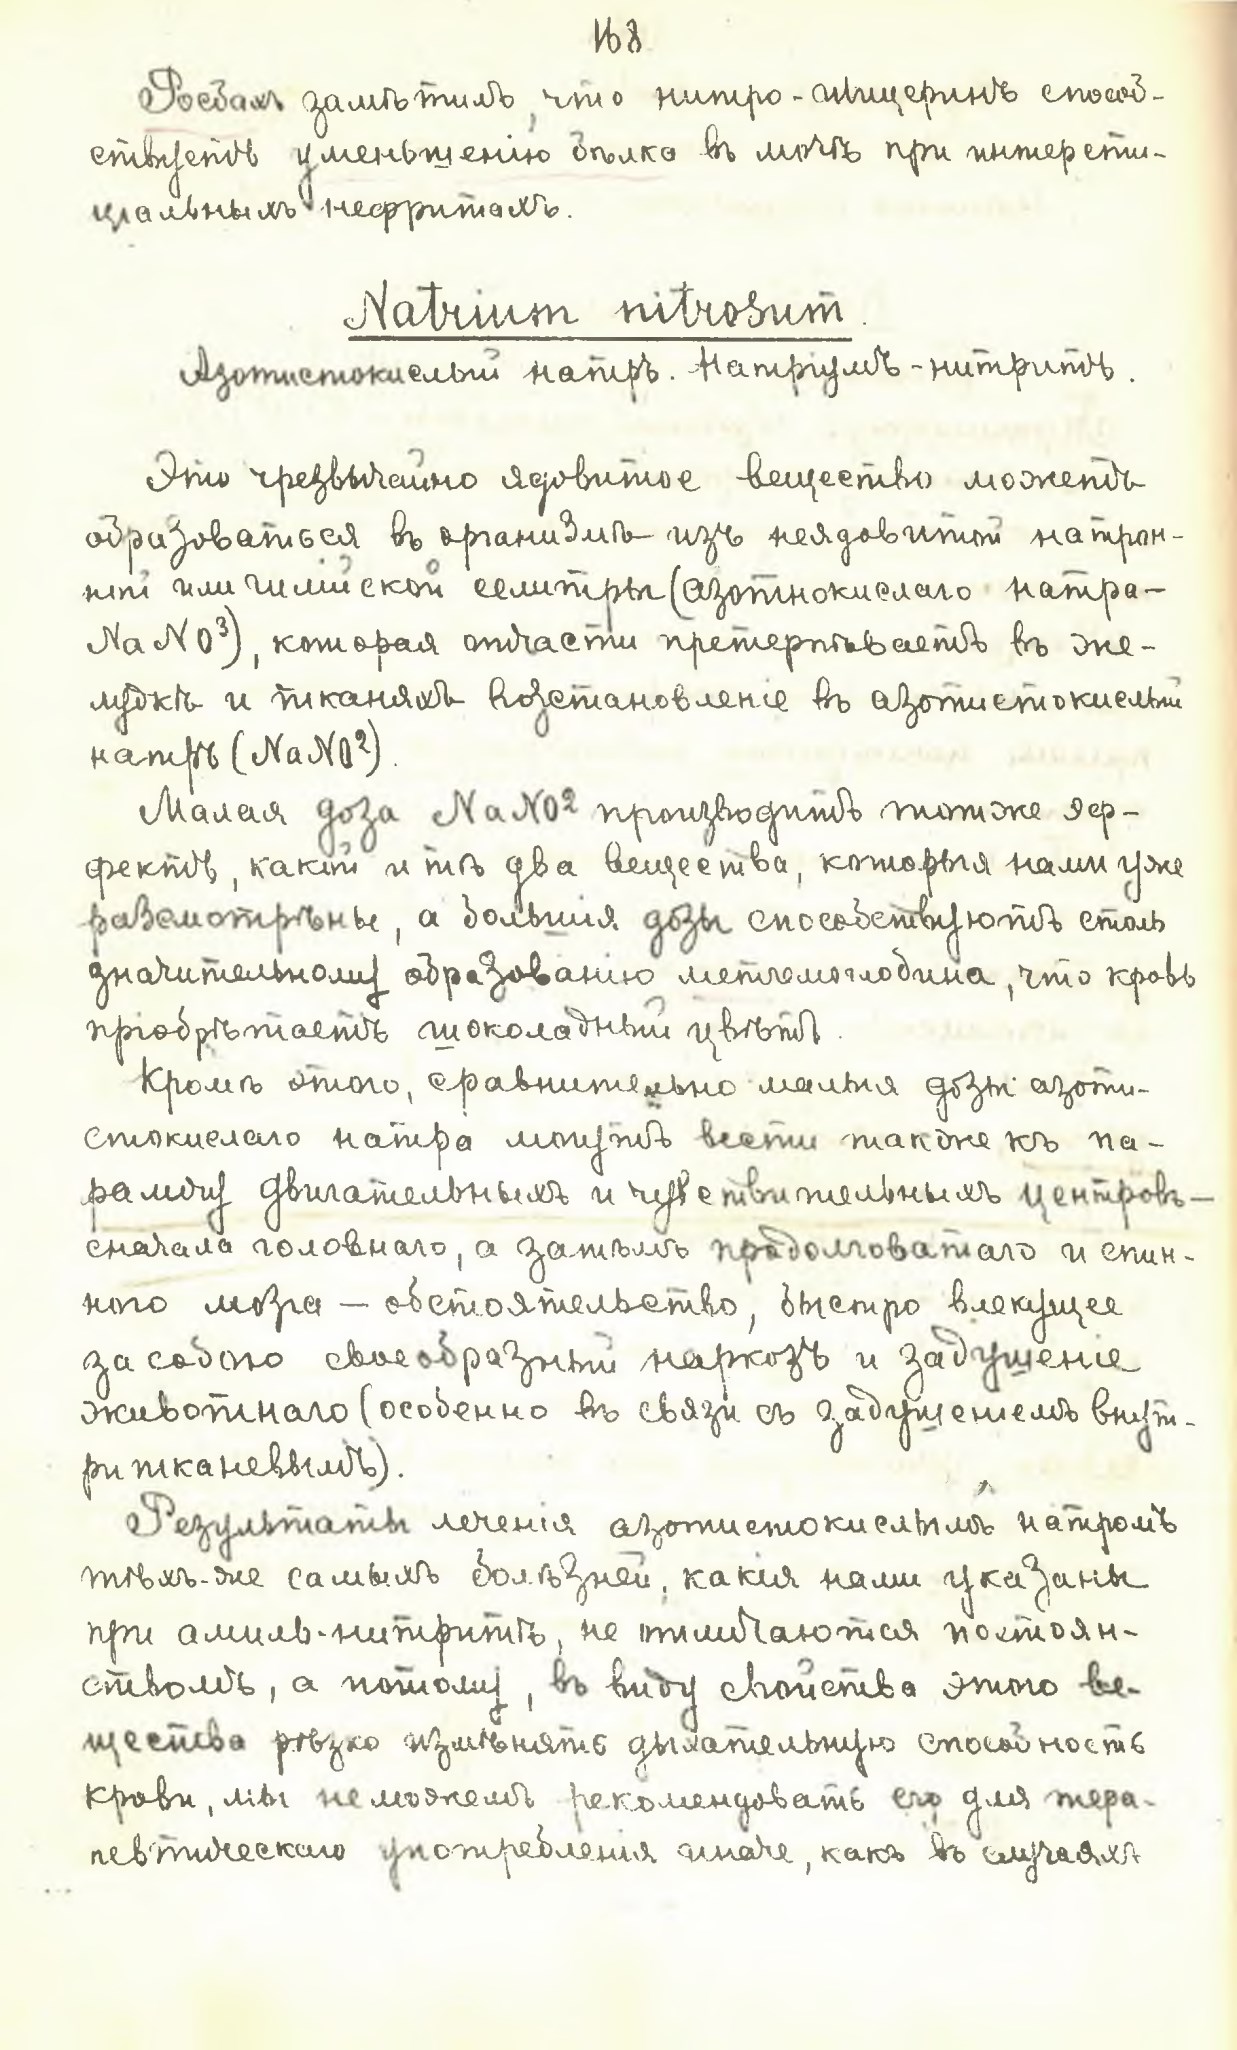 168
Росбахъ замѣтилъ, что нитро-глицеринъ способ-
ствуетъ уменьшенію бѣлка въ мочѣ при интерсти-
ціальныхъ нефритахъ.
Natrium nitrosum.
Азотистокислый натръ. Натріумъ-нитритъ.
Это чрезвычайно ядовитое вещество можетъ
образоваться въ организмѣ изъ неядовитой натрон-
ной или чилійской селитры (азотнокислаго натра-
NaNO³), которая отчасти претерпѣваетъ въ же-
лудкѣ и тканяхъ возстановленіе въ азотистокислый
натръ (NaNO²).
Малая доза NaNO² производитъ тотже эф-
фектъ, какой и тѣ два вещества, которыя нами уже
разсмотрѣны, а большія дозы способствуютъ столь
значительному образованію метгемоглобина, что кровь
пріобрѣтаетъ шоколадный цвѣтъ.
Кромѣ этого, сравнительно малыя дозы азоти-
стокислаго натра могутъ вести также къ па-
раличу двигательныхъ и чувствительныхъ центровъ—
сначала головнаго, а затѣмъ продолговатаго и спин-
ного мозга — обстоятельство, быстро влекущее
за собою своеобразный наркозъ и задушеніе
животнаго (особенно въ связи съ задушеніемъ внут-
ритканевымъ).
Результаты леченія азотистокислымъ натромъ
тѣхъ-же самыхъ болѣзней, какія нами указаны
при амилъ-нитритѣ, не отличаются постоян-
ствомъ, а потому, въ виду свойства этого ве-
щества рѣзко измѣнять дыхательную способность
крови, мы не можемъ рекомендовать его для тера-
певтическаго употребленія иначе, какъ въ случаяхъ